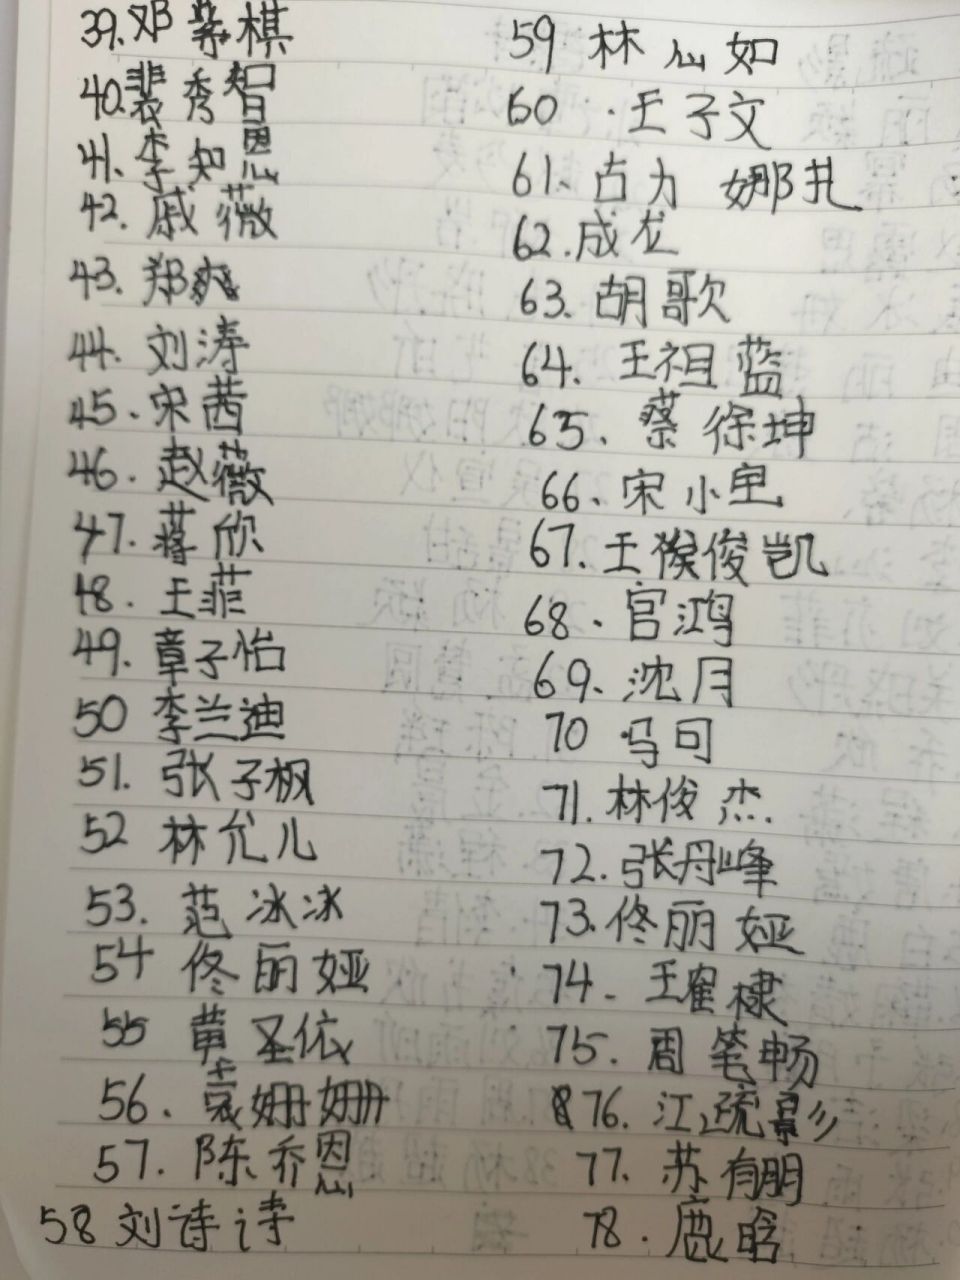 39.邓紫棋
40.裴秀智
41.李知恩
42.戚薇
43.郑爽
44.刘涛
45.宋茜
46.赵薇
47.蒋欣
48.王菲
49.章子怡
50 李兰迪
51.张子枫
52 林允儿
53.范冰冰
54 佟丽娅
55 黄圣依
56.袁姗姗
57.陈乔恩
58 刘诗诗
59 林心如
60.王子文
61.古力娜扎
62.成龙
63.胡歌
64.王祖蓝
65.蔡徐坤
66.宋小宝
67.王俊凯
68.官鸿
69.沈月
70 马可
71.林俊杰
72.张丹峰
73.佟丽娅
74.王崔棣
75.周笔畅
76.江疏影
77.苏有朋
78.鹿晗